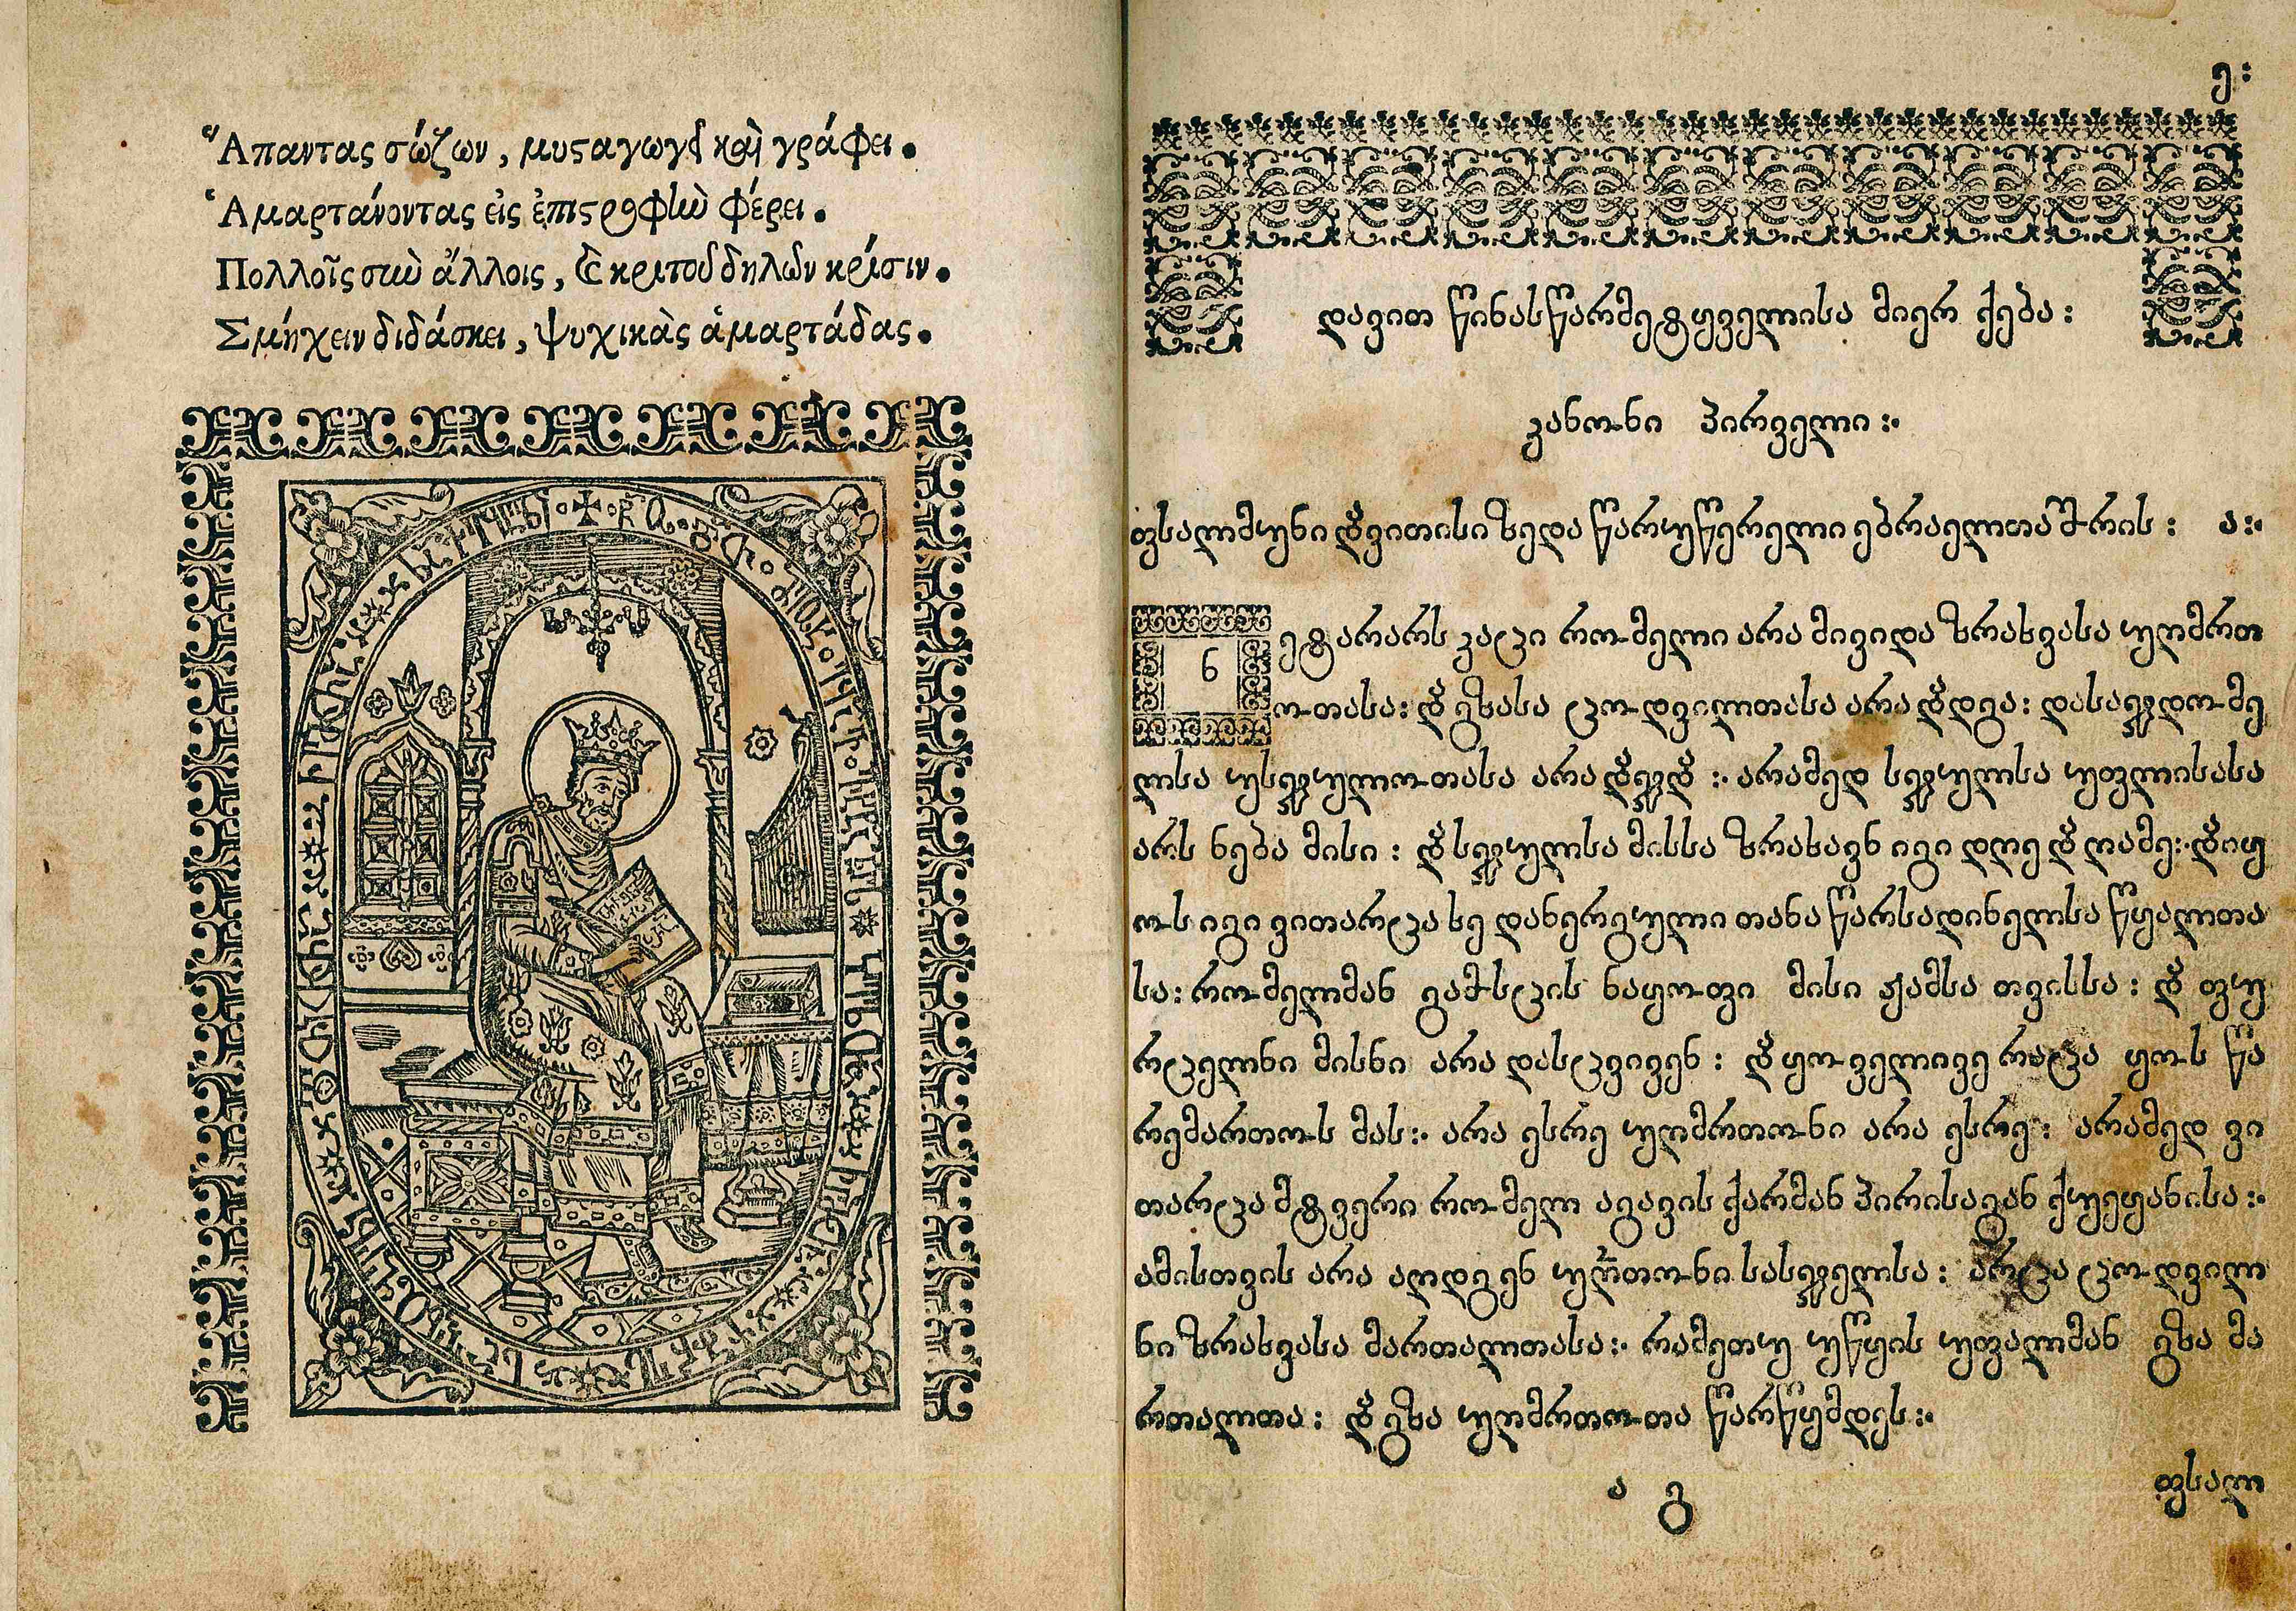 Ἅπαντας σώζων, μυσαγωγεῖ καὶ γράφει.
Ἁμαρτάνοντας εἰς ἐπιςροφὴν φέρει.
Πολλοῖς σὺν ἄλλοις, ἐκ κριτοῦ δηλῶν κρίσιν.
Σμήχειν διδάσκει, ψυχικὰς ἁμαρτάδας.
ე:
დავით წინასწარმეტყველისა მიერ ქება:
კანონი პირველი:.
ფსალმუნი დვითისი ზედა წარუწერელი ებრაელთა მრის: ა:.
ნ
ეტარარს კაცი რომელი არა მივიდა ზრახვასა უღმრთ
ოთასა: და გზასა ცოდვილთასა არა დადგა: დასაჯდომე
ლსა უსჯულოთასა არა დაჯდა:. არამედ სჯულსა უფლისასა
არს ნება მისი: და სჯულსა მისსა ზრახავნ იგი დღე და ღამე:. და იყ
ოს იგი ვითარცა ხე დანერგული თანა წარსადინელსა წყალთა
სა: რომელმან გამოსცის ნაყოფი მისი ჟამსა თვისსა: და ფუ
რცელნი მისნი არა დასცვივენ: და ყოველივე რაცა ყოს წა
რემართოს მას:. არა ესრე უღმრთონი არა ესრე: არამედ ვი
თარცა მტვერი რომელ აგავის ქარმან პირისაგან ქუეყანისა:.
ამისთვის არა აღდგენ უღმრთონი სასჯელსა: არცა ცოდვილ
ნი ზრახვასა მართალთასა:. რამეთუ უწყის უფალმან გზა მა
რთალთა: და გზა უღმრთოთა წარწყმდეს:.
ა გ
ფსალ